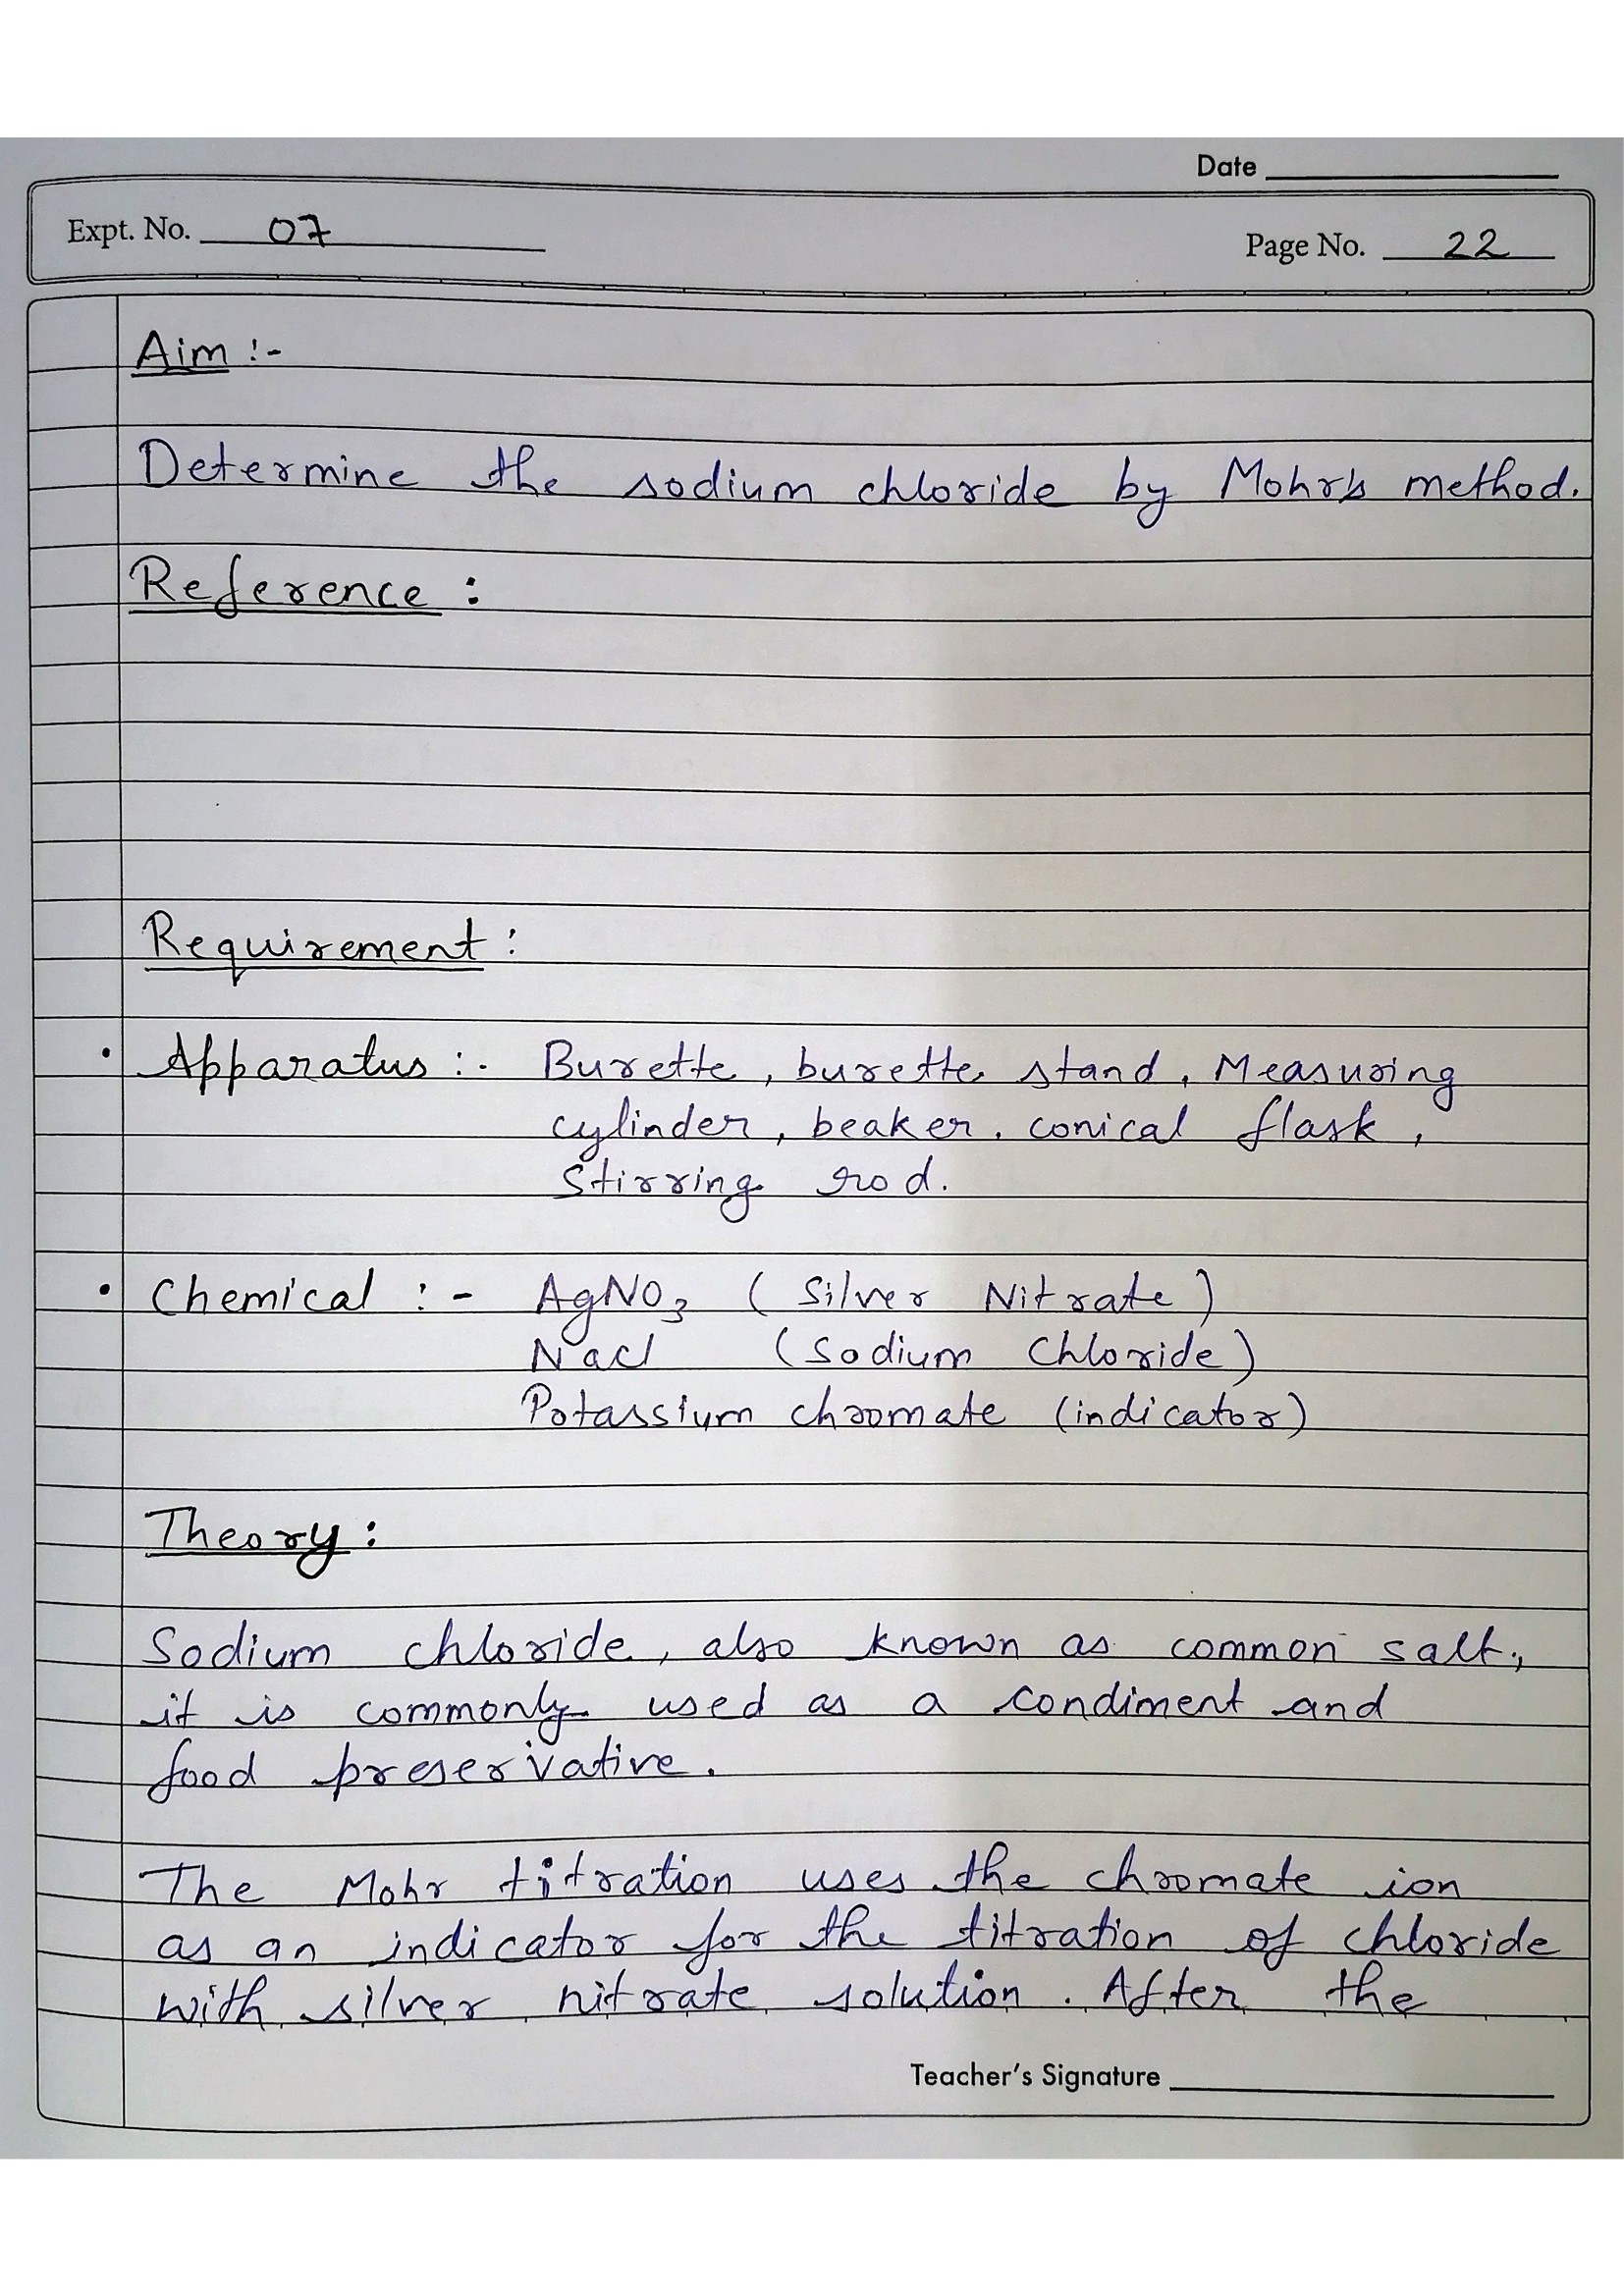 Date
Expt. No. 07
Page No. 22
Aim :-
Determine the sodium chloride by Mohr's method.
Reference :
Requirement :
• Apparatus :- Burette, burette stand, Measuring
cylinder, beaker, conical flask,
Stirring rod.
• Chemical :- AgNO₃ (Silver Nitrate)
Nacl (Sodium Chloride)
Potassium chromate (indicator)
Theory :
Sodium chloride, also known as common salt,
it is commonly used as a condiment and
food preservative.
The Mohr titration uses the chromate ion
as an indicator for the titration of chloride
with silver nitrate solution. After the
Teacher's Signature